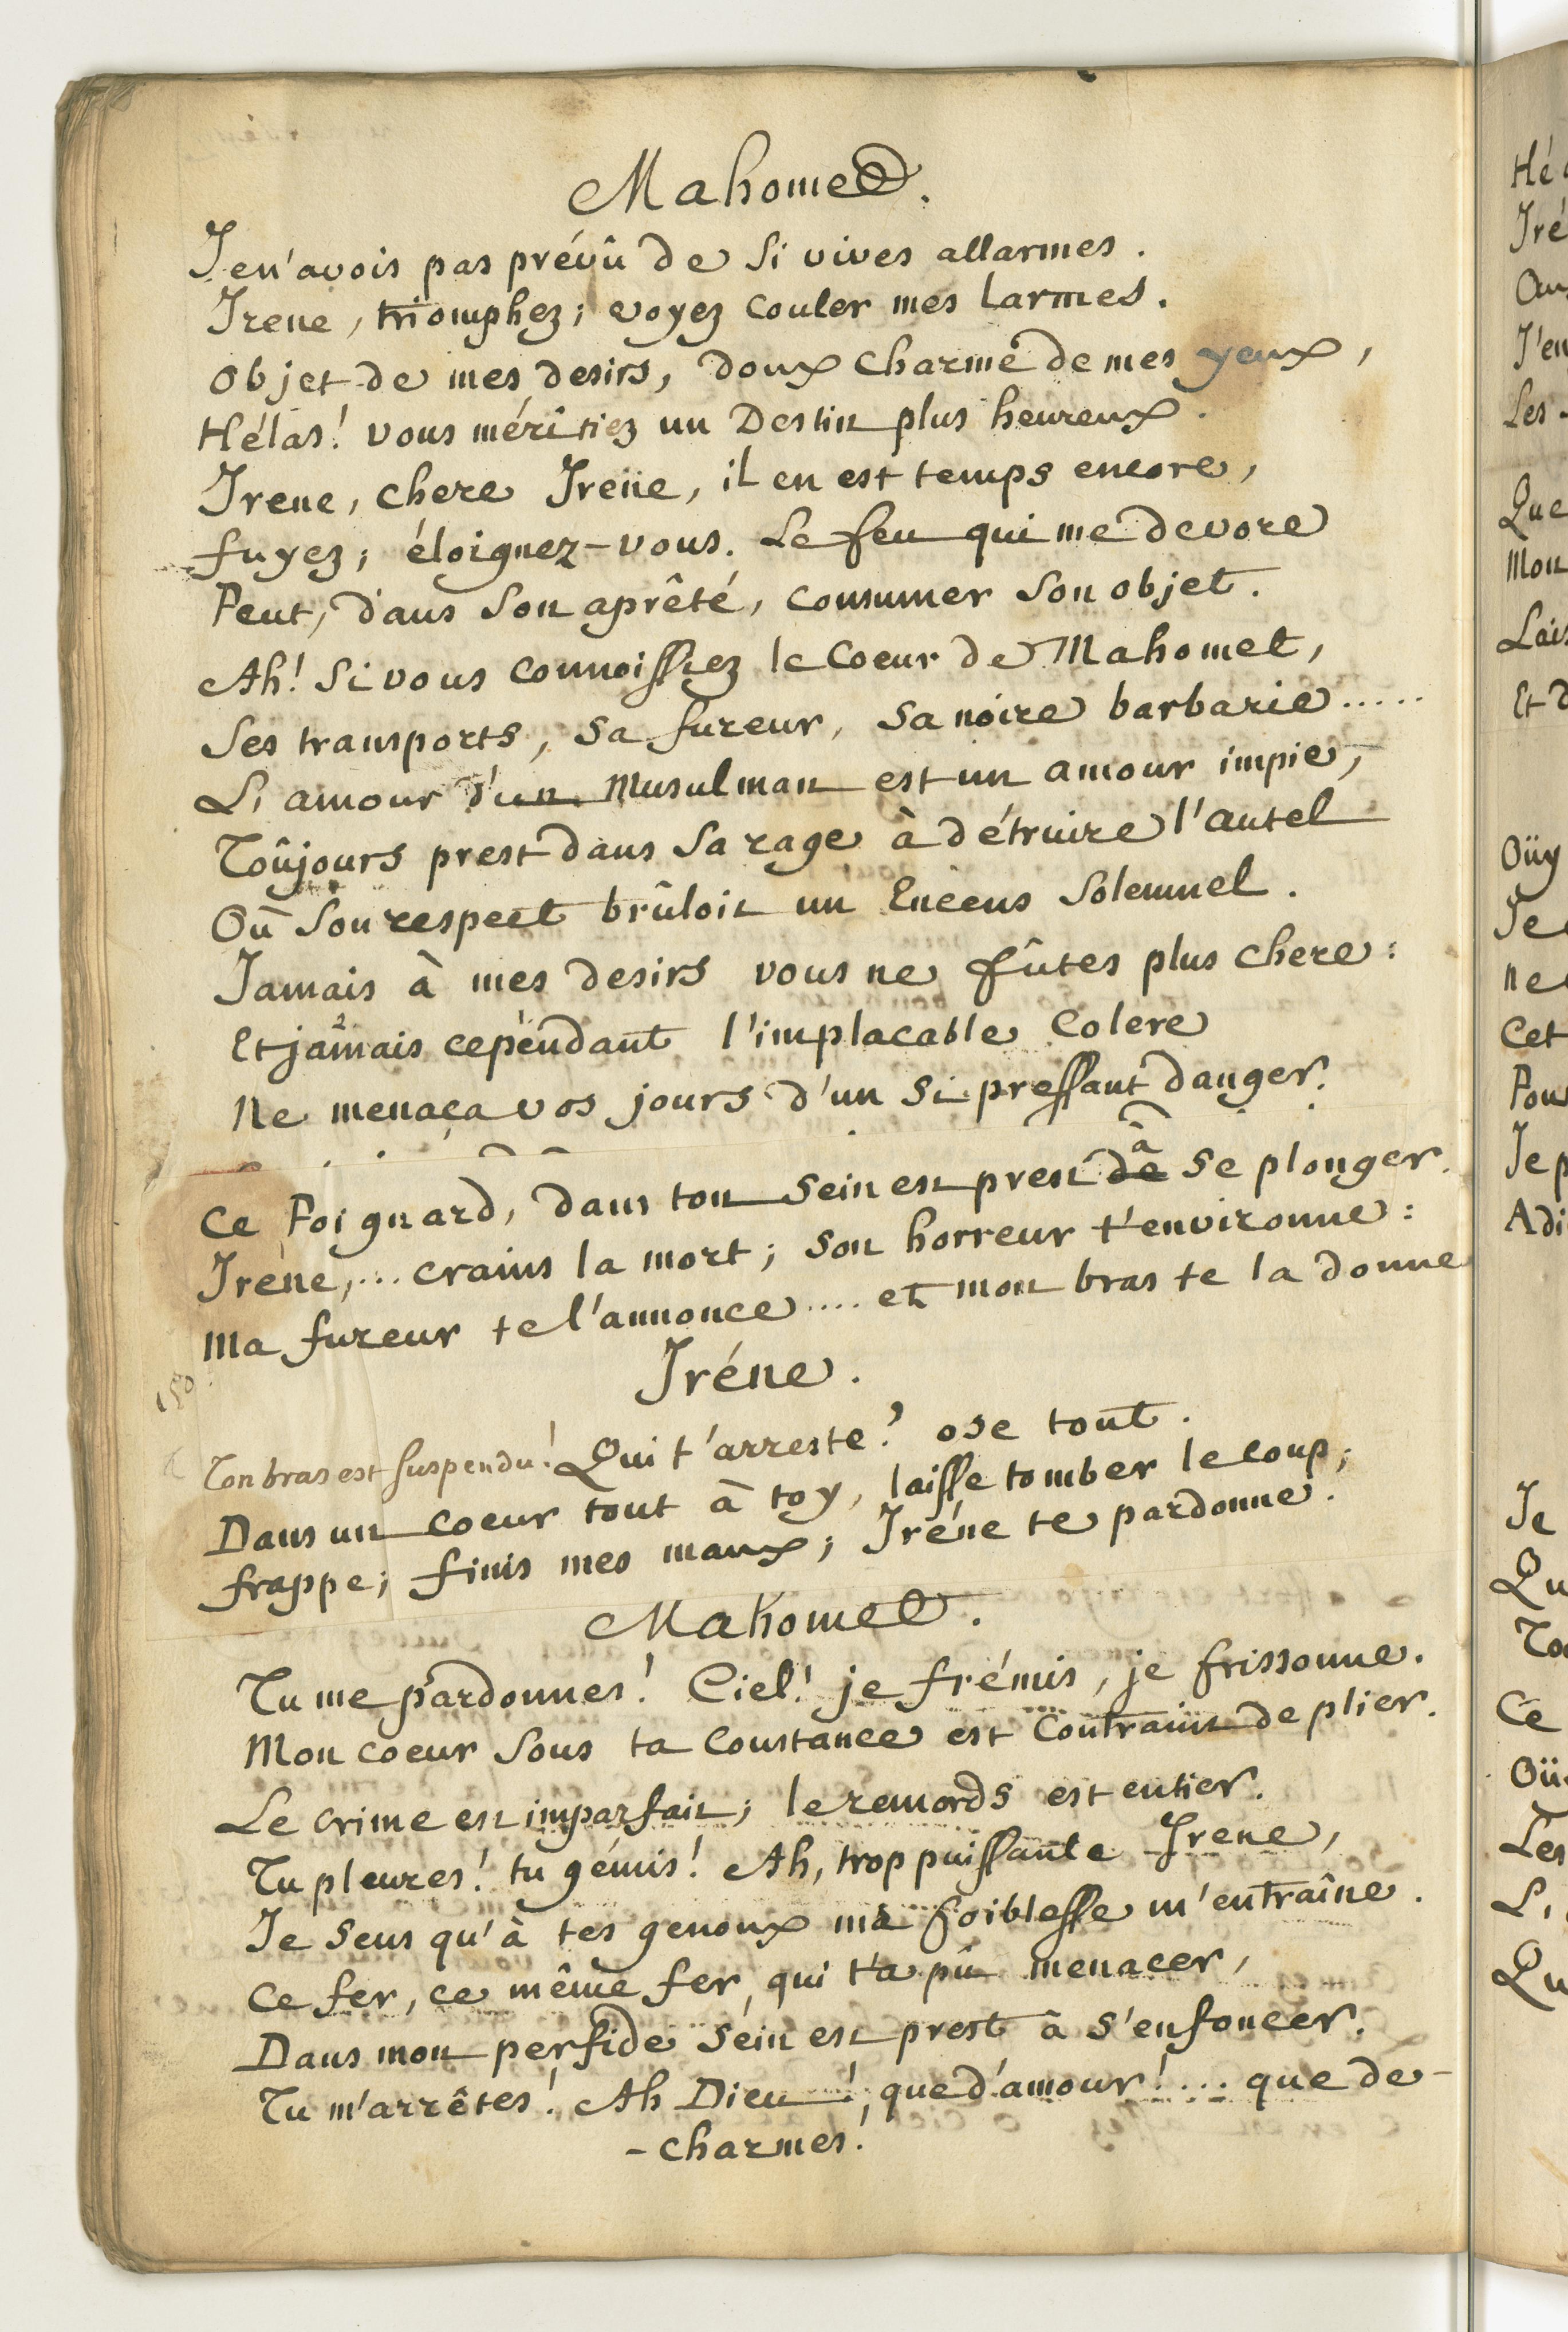 Mahomed.
Je n'avois pas prévû de si vives allarmes.
Irene, triomphez; voyez couler mes larmes.
Objet de mes desirs, doux charme de mes yeux,
Hélas! vous méritiez un Destin plus heureux.
Irene, chere Irene, il en est temps encore,
fuyez; éloignez-vous. Le feu qui me devore
Peut, dans son aprêté, consumer son objet.
Ah! si vous connoissiez le coeur de Mahomet,
Ses transports, sa fureur, sa noire barbarie.....
L'amour d'un Musulman est un amour impie,
Toûjours prest dans sa rage à détruire l'autel
Où son respect brûloit un Encens solemnel.
Jamais à mes desirs vous ne fûtes plus chere:
Et jamais cependant l'implacable Colere
Ne menaça vos jours d'un si pressant danger.
Ce Poignard, dans ton sein est prest de à se plonger.
Iréne,... crains la mort; son horreur t'environne:
Ma fureur te l'annonce.... et mon bras te la donne
Iréne.
Ton bras est suspendu! Qui t'arreste? ose tout.
Dans un coeur tout à toy, laisse tomber le coup;
frappe; finis mes maux; Iréne te pardonne.
Mahomet.
Tu me pardonnes! Ciel! je frémis, je frissonne.
Mon coeur sous ta constance est contraint de plier.
Le crime est imparfait; le remords est entier.
Tu pleures! tu gémis! Ah, trop puissante Irene,
Je sens qu'à tes genoux ma foiblesse m'entraîne.
Ce fer, ce même fer, qui t'a pû menacer,
Dans mon perfide sein est prest à s'enfoncer.
Tu m'arrêtes! Ah Dieu! que d'amour!... que de-
-charmes!
150
Hé
Iré
J'en
Les
Que
Mon
Lais
Et d
Oüy
Je
ne
Cet
Pou
Je p
Adi
Je
Qu
Ce
Les
Qu